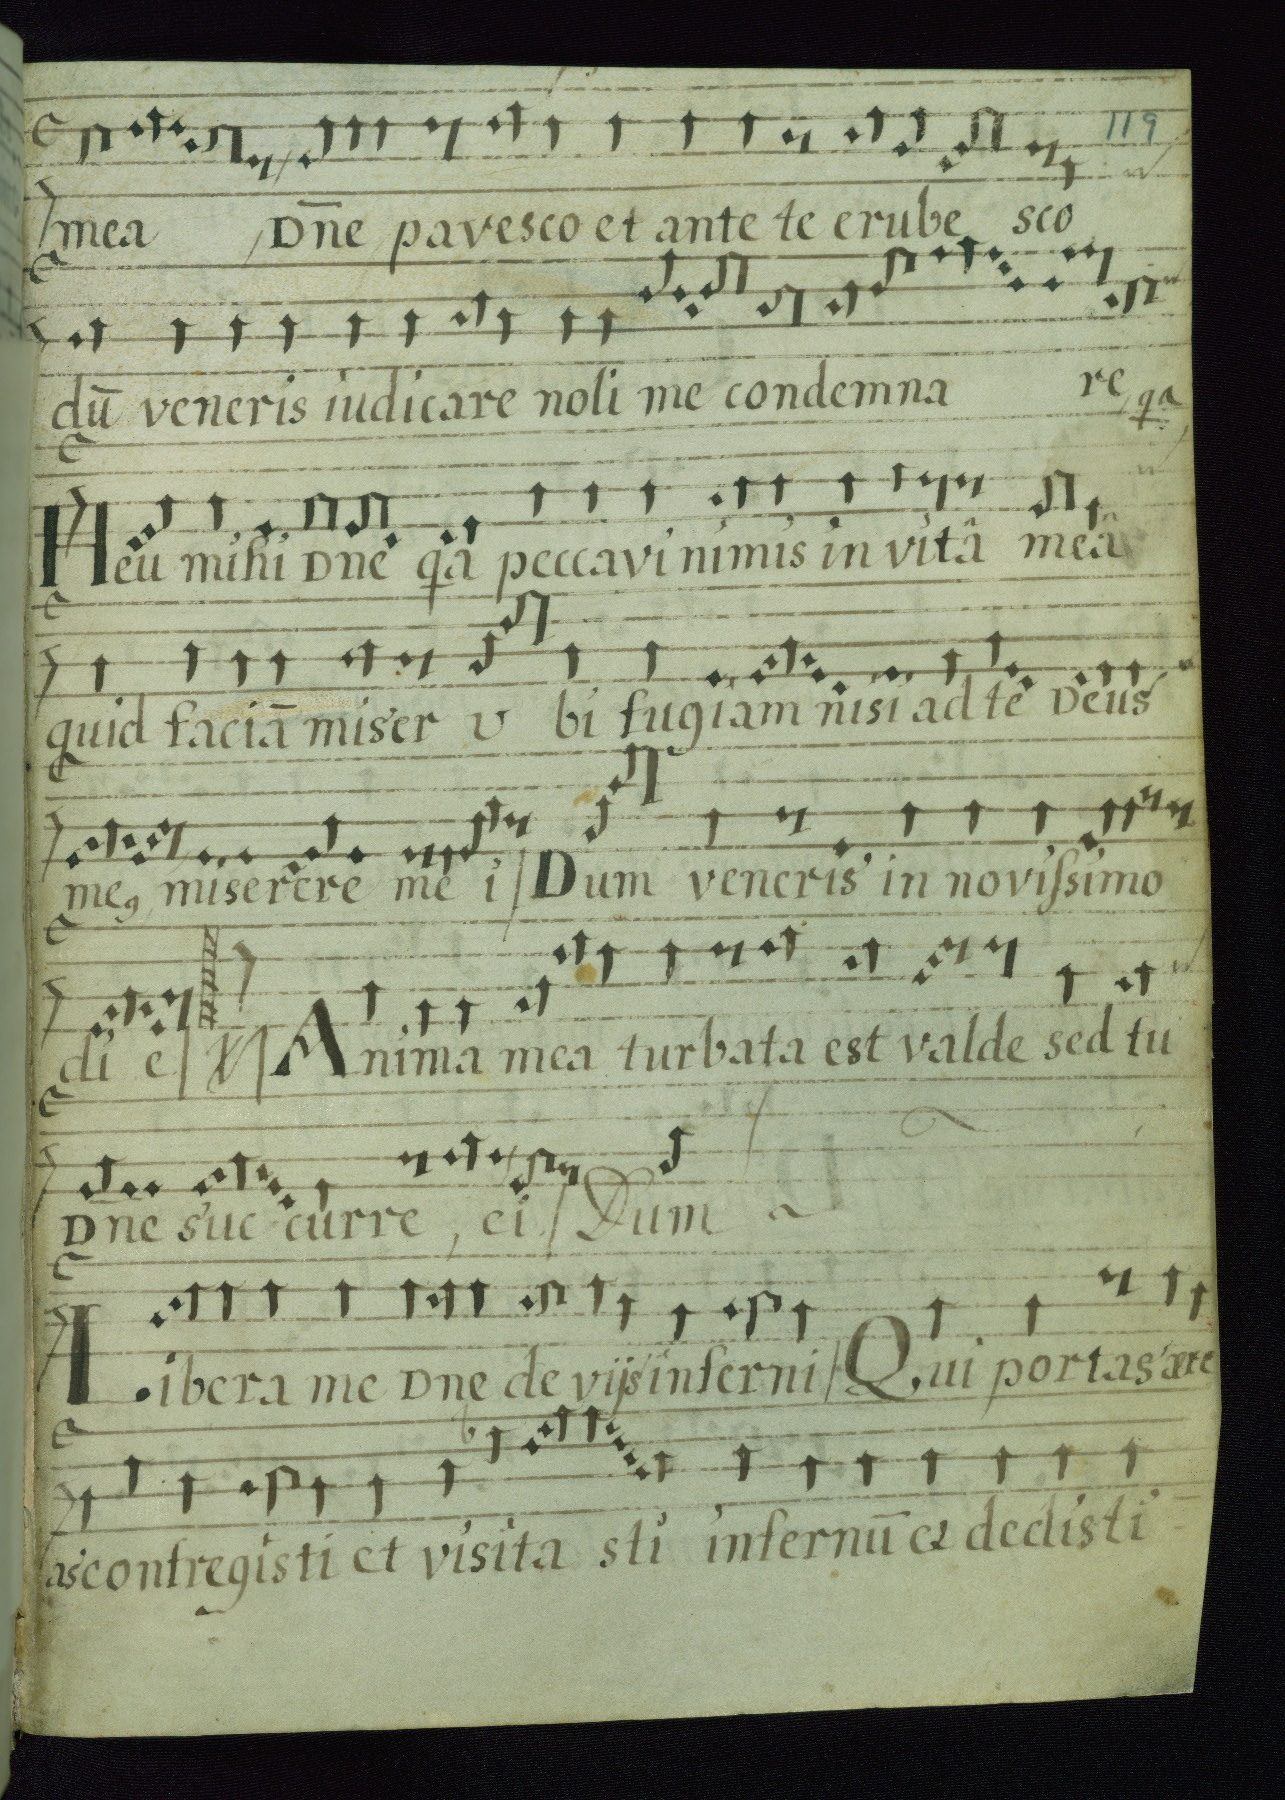 119
mea Dn̄e pavesco et ante te erube sco
dū veneris iudicare noli me condemna re, qa
Heu mihi Dne qa peccavi nimis in vitâ meâ
quid faciā miser v bi fugiam nisi ad te Deus
meꝯ, miserere me i / Dum veneris in novissimo
di e / V / Anima mea turbata est valde sed tu
Dne suc curre, ei / Dum
Libera me Dne de vijs inferni / Qui portas ære
as confregisti et visita sti infernū et dedisti